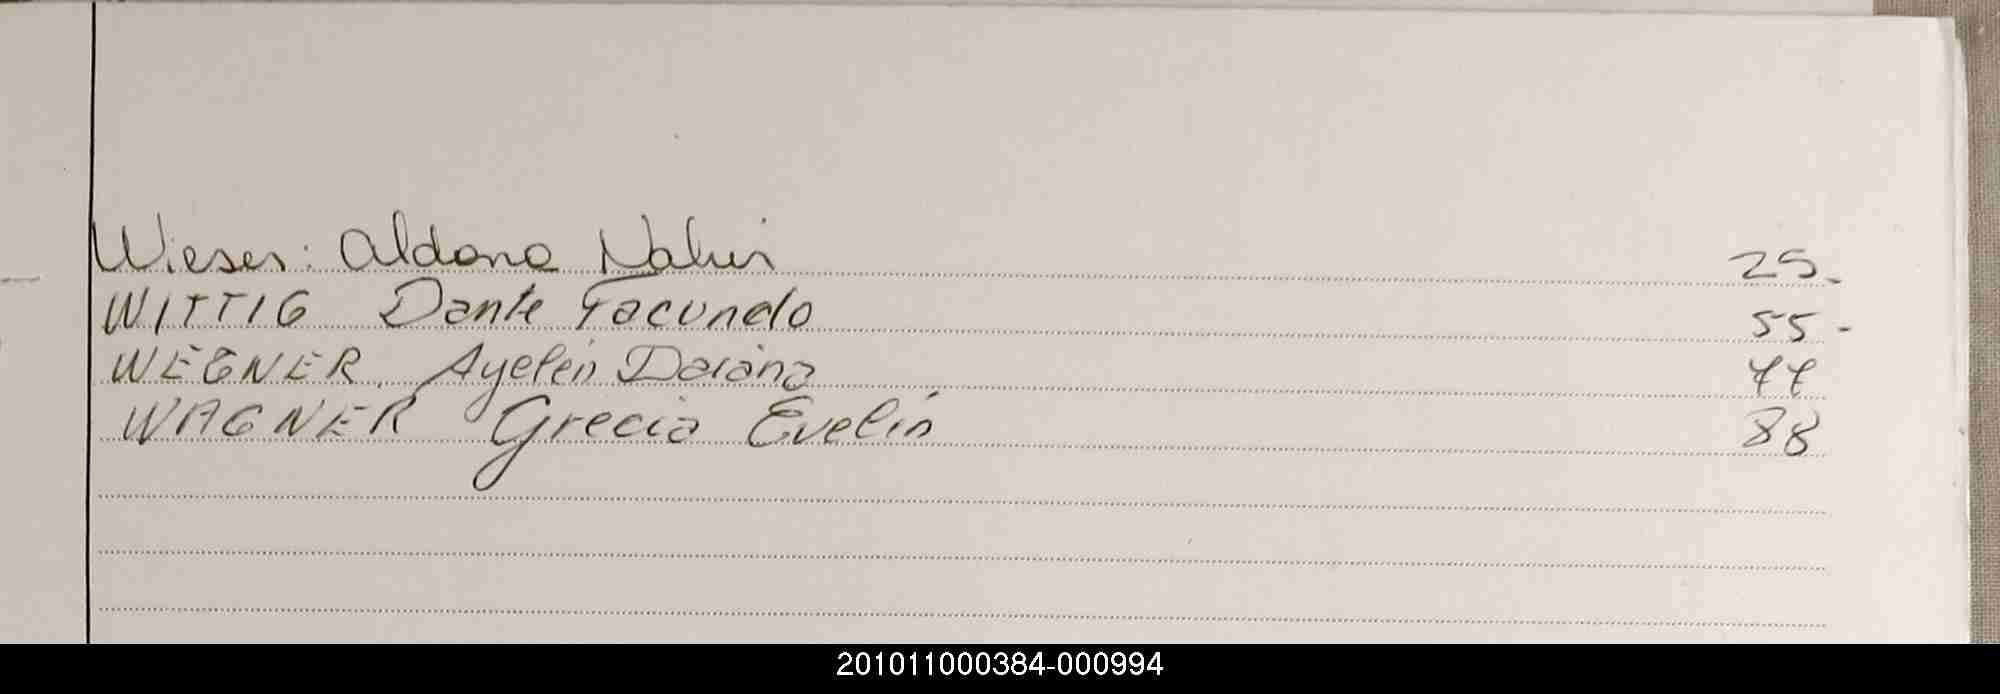 Wieser: Aldana Nahir 25.
WITTIG Dante Facundo 55-
WEGNER, Ayelén Daiana 77
WAGNER Grecia Evelin 88
201011000384-000994